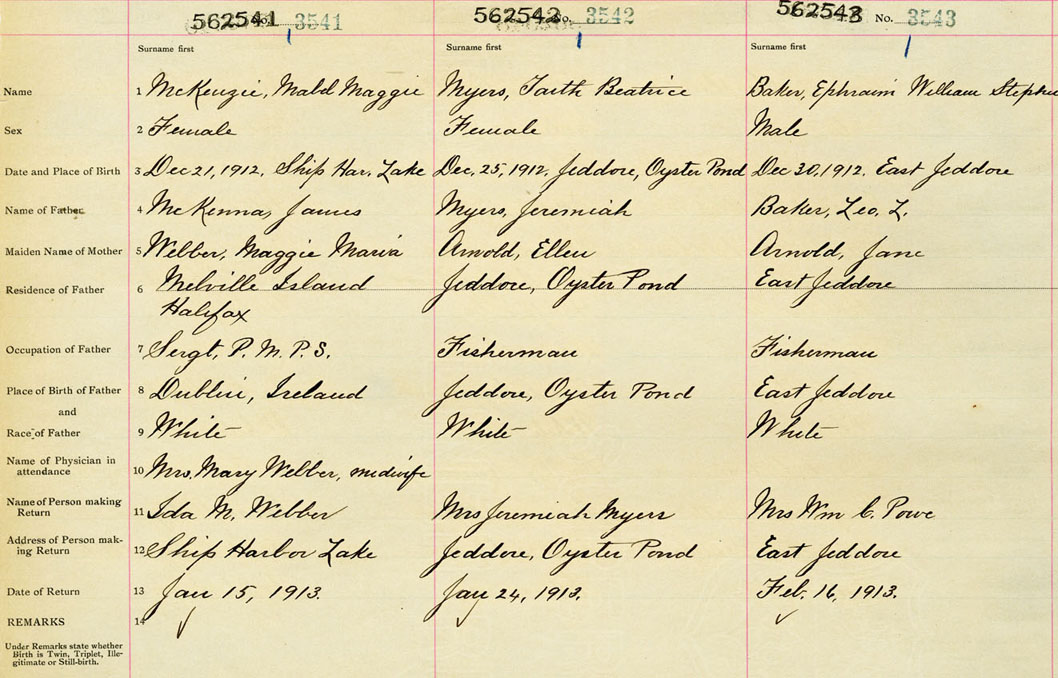 562541 No. 3541 562542 No. 3542 562543 No. 3543
Surname first Surname first Surname first
Name 1 McKenzie, Mabd Maggie Myers, Faith Beatrice Baker, Ephraim William Stephen
Sex 2 Female Female Male
Date and Place of Birth 3 Dec 21, 1912, Ship Har. Lake Dec. 25, 1912, Jeddore, Oyster Pond Dec 30, 1912. East Jeddore
Name of Father 4 McKenna, James Myers, Jeremiah Baker, Leo. L.
Maiden Name of Mother 5 Webber, Maggie Maria Arnold, Ellen Arnold, Jane
Residence of Father 6 Melville Island Jeddore, Oyster Pond East Jeddore
Halifax
Occupation of Father 7 Sergt, P. M. P. S. Fisherman Fisherman
Place of Birth of Father 8 Dublin, Ireland Jeddore, Oyster Pond East Jeddore
and
Race of Father 9 White White White
Name of Physician in
attendance 10 Mrs. Mary Webber, midwife
Name of Person making
Return 11 Ida M. Webber Mrs Jeremiah Myers Mrs Wm C. Powe
Address of Person mak-
ing Return 12 Ship Harbor Lake Jeddore, Oyster Pond East Jeddore
Date of Return 13 Jan 15, 1913. Jan 24, 1913. Feb. 16, 1913.
REMARKS 14
Under Remarks state whether
Birth is Twin, Triplet, Ille-
gitimate or Still-birth.